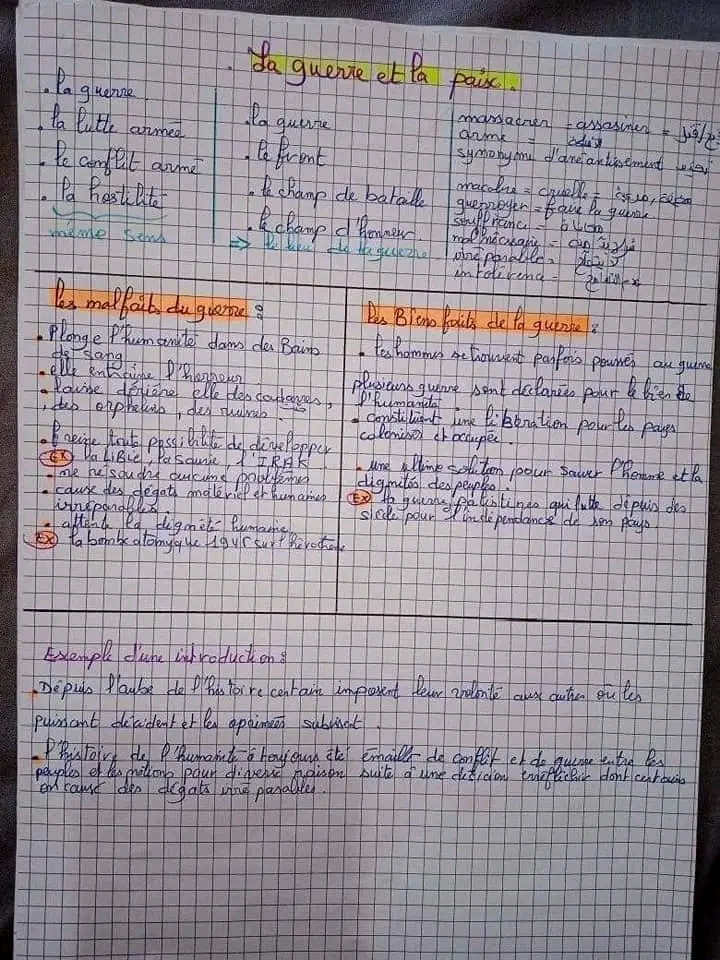 La guerre et la paix.
. la guerre
. la lutte armée
. le conflit armé
. la hostilité
même sens
. la guerre
. le front
. le champ de bataille
. le champ d'honneur
=> le lieu de la guerre
massacrer - assasiner =
arme =
symonyme d'aneantissement
macabre = cruelle =
guerroyer = faire la guerre
souffrance =
mal nécessaire =
irréparable =
intolérence =
les malfaits du guerre :
. Plonge l'humanité dans des Bains
de sang
. elle entraine l'horreur
. laisse dérière elle des cadavres,
, des orphelins, des ruines
. freine toute possibilité de développer
Ex la Libie, la Syrie, l'IRAK
. ne résoudre aucune problèmes
. cause des dégats matériel et humaines
irréparables.
. atteinte la dignité humaine
Ex la bombe atomyque 1945 sur
les Biens faits de la guerre :
. les hommes se trouvent parfois poussés au guerre
plusieurs guerre sont déclarées pour le bien de
l'humanité
. constituent une libération pour les pays
colonisés et occupée.
. une ultime solution pour sauver l'homme et la
dignités des peuples.
Ex la guerre palestines qui lutte dépuis des
siècle pour l'indépendance de son pays.
Exemple d'une introduction :
. Dépuis l'aube de l'histoire certain imposent leur volonté aux autres où les
puissant décident et les opprimés subissent.
. l'histoire de l'humanité à toujours été émaillé de conflit et de guerre entre les
peuples et les nations pour diverse raison suite à une décision irréfléchir dont certains
en cause des dégats irréparables.